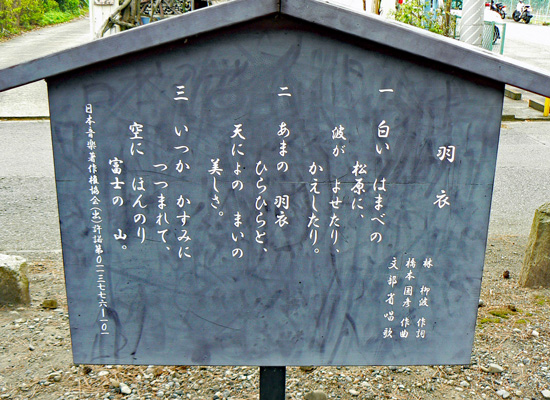 羽衣
林 柳波 作詞
橋本国彦 作曲
文部省唱歌
一 白い はまべの
松原に、
波が よせたり、
かえしたり。
二 あまの 羽衣
ひらひらと、
天にょの まいの
美しさ。
三 いつか かすみに
つつまれて、
空に ほんのり
富士の 山。
日本音楽著作権協会(出)許諾第0113776-101